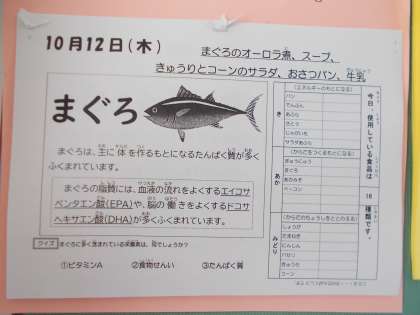 10月12日(木)
まぐろのオーロラ煮、スープ、
きゅうりとコーンのサラダ、おさつパン、牛乳
まぐろ
まぐろは、主に体を作るもとになるたんぱく質が多く
ふくまれています。
まぐろの脂質には、血液の流れをよくするエイコサ
ペンタエン酸(EPA)や、脳の働きをよくするドコサ
ヘキサエン酸(DHA)が多くふくまれています。
クイズ まぐろに多く含まれている栄養素は、何でしょうか?
①ビタミンA ②食物せんい ③たんぱく質
今日、使用している食品は
18
種類です。
き
(エネルギーのもとになる)
パン
でんぷん
あぶら
さとう
じゃがいも
サラダあぶら
あか
(からだをつくるもとになる)
ぎゅうにゅう
まぐろ
あかみそ
ベーコン
みどり
(からだのちょうしをととのえる)
しょうが
たまねぎ
にんじん
パセリ
きゅうり
コーン